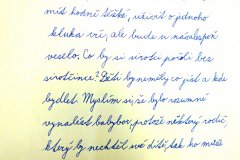 mít hodně těžké, učinit o jednoho
kluka víc, ale bude u nás alespoň
veselo. Co by si siroty počali bez
sirotčince? Děti by neměly co jíst a kde
bydlet. Myslím si, že bylo rozumné
vynalést babybox, protože některý rodič,
který by nechtěl své dítě, tak ho může